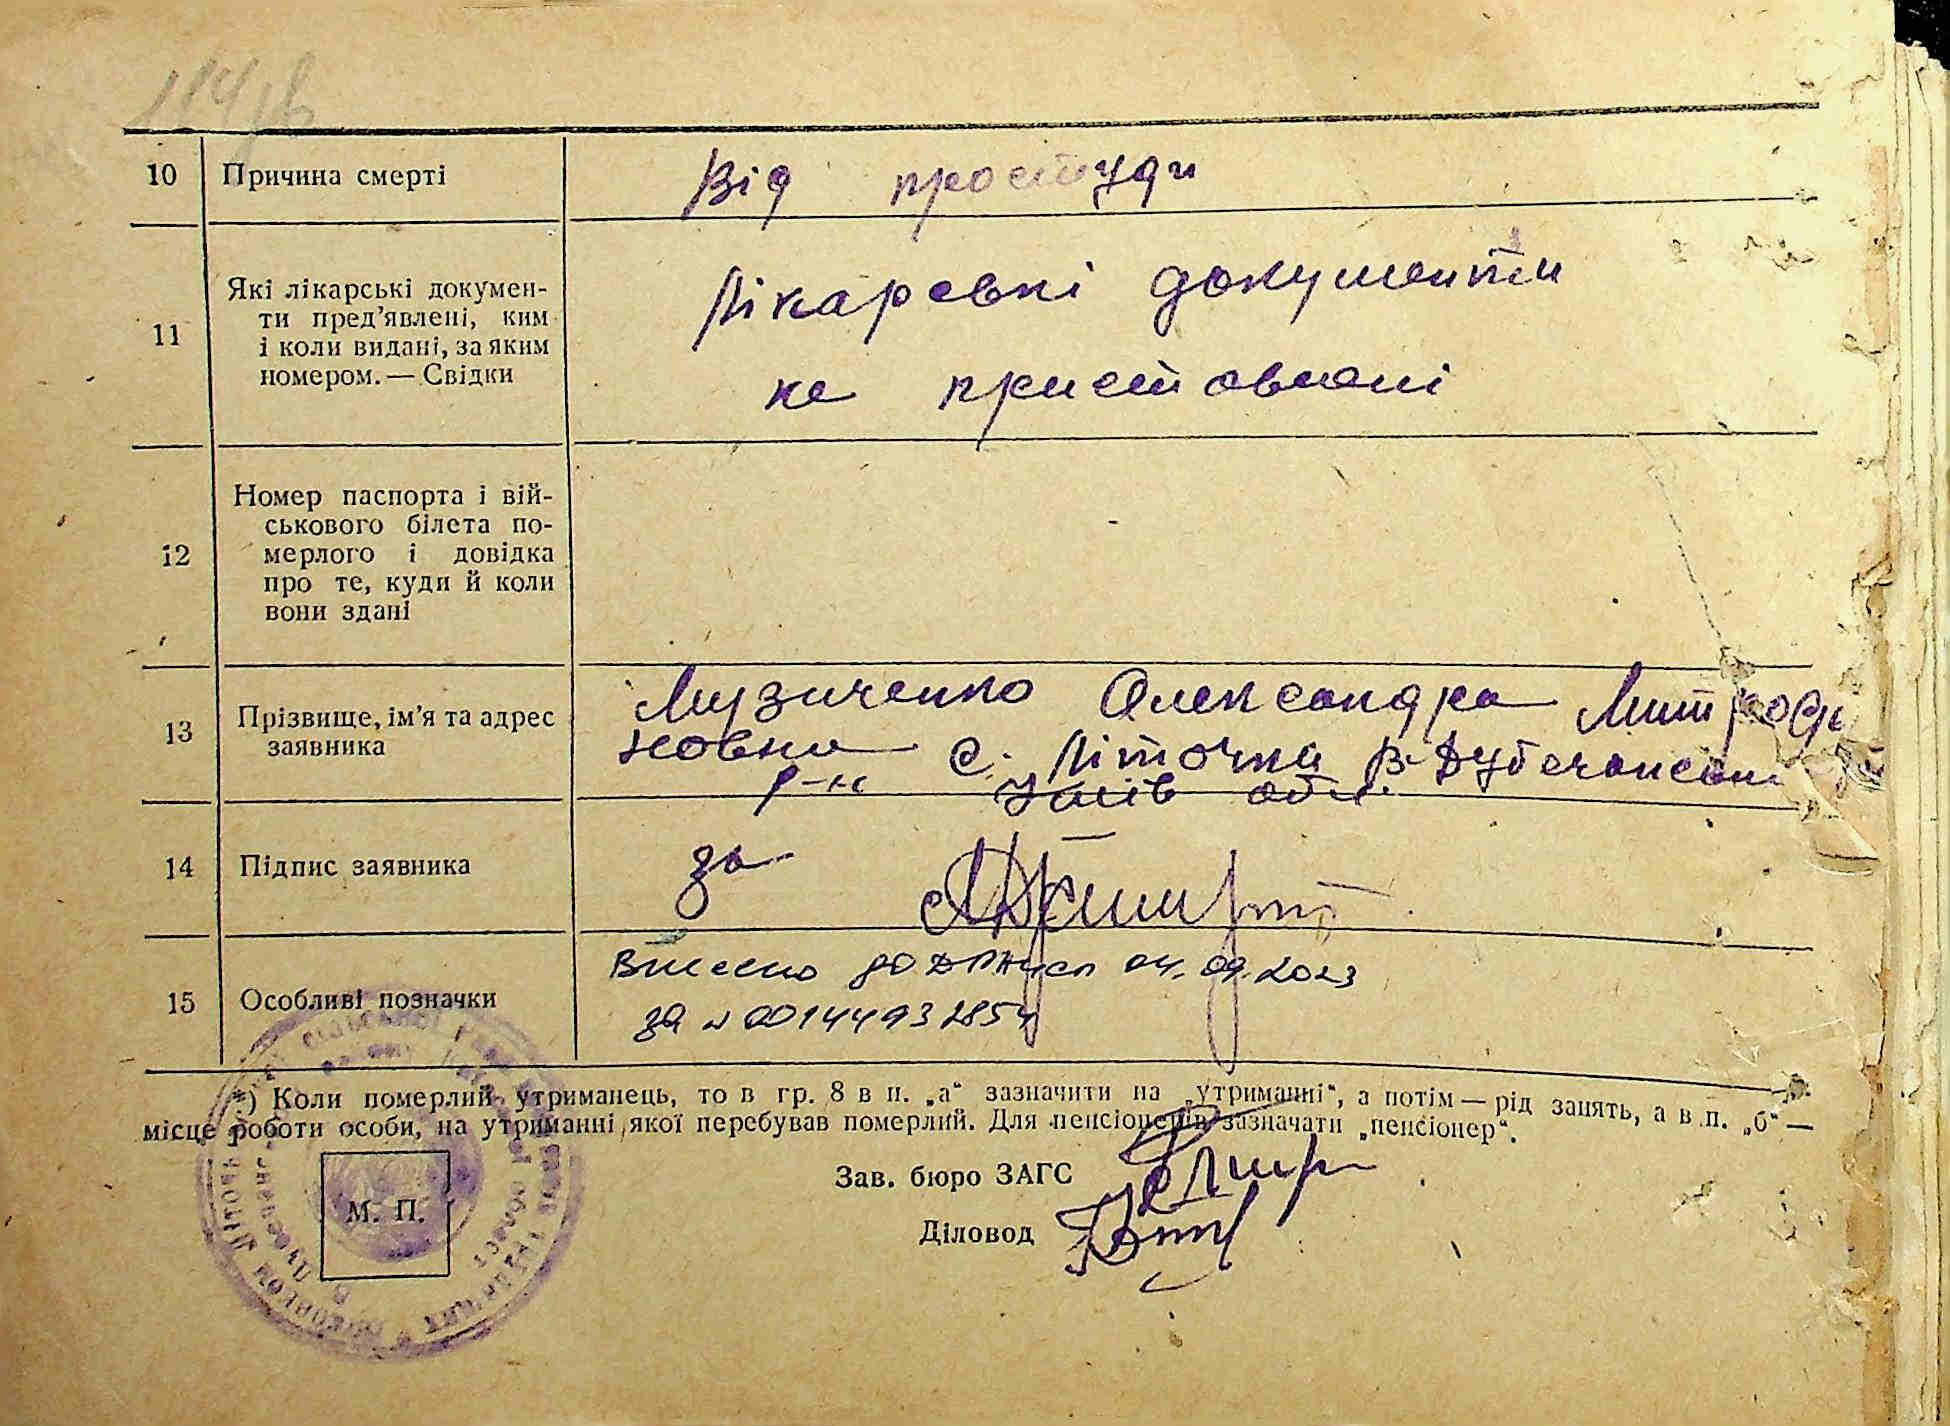 114зв
10 Причина смерті Від простуди
11 Які лікарські докумен-
ти пред'явлені, ким
і коли видані, за яким
номером. — Свідки
Лікарські документи
не приставлені
12 Номер паспорта і вій-
ськового білета по-
мерлого і довідка
про те, куди й коли
вони здані
13 Прізвище, ім'я та адрес
заявника
Музиченко Олександра Митрофа
новна с. Літочки В-Дубечанськ
р-н Київ обл.
14 Підпис заявника за
15 Особливі позначки
Внесено до ДРАЦСГ 04.09.2023
за № 00144932854
*) Коли померлий утриманець, то в гр. 8 в п. „а“ зазначити на „утриманні“, а потім — рід занять, а в п. „б“ —
місце роботи особи, на утриманні якої перебував померлий. Для пенсіонерів зазначати „пенсіонер“.
Зав. бюро ЗАГС
Діловод
М. П.